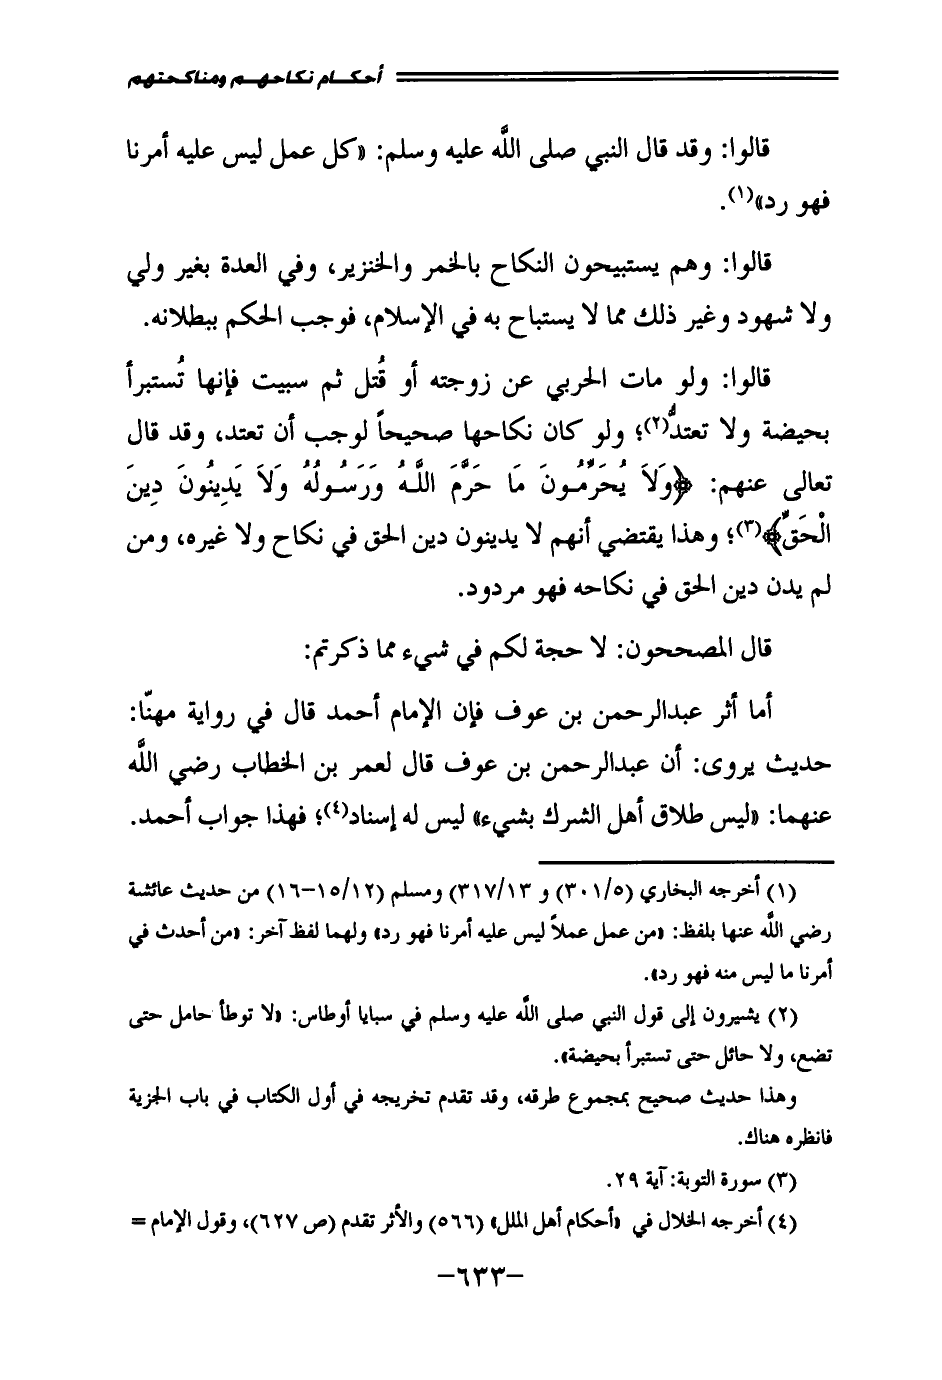 أحكـــام نكاحهـــم ومناكـحتهم
قالوا: وقد قال النبي صلى اللَّه عليه وسلم: «كل عمل ليس عليه أمرنا
فهو رد»(١).
قالوا: وهم يستبيحون النكاح بالخمر والخنزير، وفي العدة بغير ولي
ولا شهود وغير ذلك مما لا يستباح به في الإسلام، فوجب الحكم ببطلانه.
قالوا: ولو مات الحربي عن زوجته أو قُتل ثم سبيت فإنها تُستبرأ
بحيضة ولا تعتدُّ(٢)؛ ولو كان نكاحها صحيحاً لوجب أن تعتد، وقد قال
تعالى عنهم: ﴿وَلاَ يُحَرِّمُـونَ مَا حَرَّمَ اللَّـهُ وَرَسُـولُهُ وَلاَ يَدِينُونَ دِينَ
الْحَقِّ﴾(٣)؛ وهذا يقتضي أنهم لا يدينون دين الحق في نكاح ولا غيره، ومن
لم يدن دين الحق في نكاحه فهو مردود.
قال المصححون: لا حجة لكم في شيء مما ذكرتم:
أما أثر عبدالرحمن بن عوف فإن الإمام أحمد قال في رواية مهنّا:
حديث يروى: أن عبدالرحمن بن عوف قال لعمر بن الخطاب رضي اللَّه
عنهما: «ليس طلاق أهل الشرك بشيء» ليس له إسناد(٤)؛ فهذا جواب أحمد.
(١) أخرجه البخاري (٣٠١/٥) و ٣١٧/١٣) ومسلم (١٥/١٢–١٦) من حديث عائشة
رضي اللَّه عنها بلفظ: «من عمل عملاً ليس عليه أمرنا فهو رد» ولهما لفظ آخر: «من أحدث في
أمرنا ما ليس منه فهو رد».
(٢) يشيرون إلى قول النبي صلى اللَّه عليه وسلم في سبايا أوطاس: «لا توطأ حامل حتى
تضع، ولا حائل حتى تستبرأ بحيضة».
وهذا حديث صحيح بمجموع طرقه، وقد تقدم تخريجه في أول الكتاب في باب الجزية
فانظره هناك.
(٣) سورة التوبة: آية ٢٩.
(٤) أخرجه الخلال في «أحكام أهل الملل» (٥٦٦) والأثر تقدم (ص ٦٢٧)، وقول الإمام =
–٦٣٣–